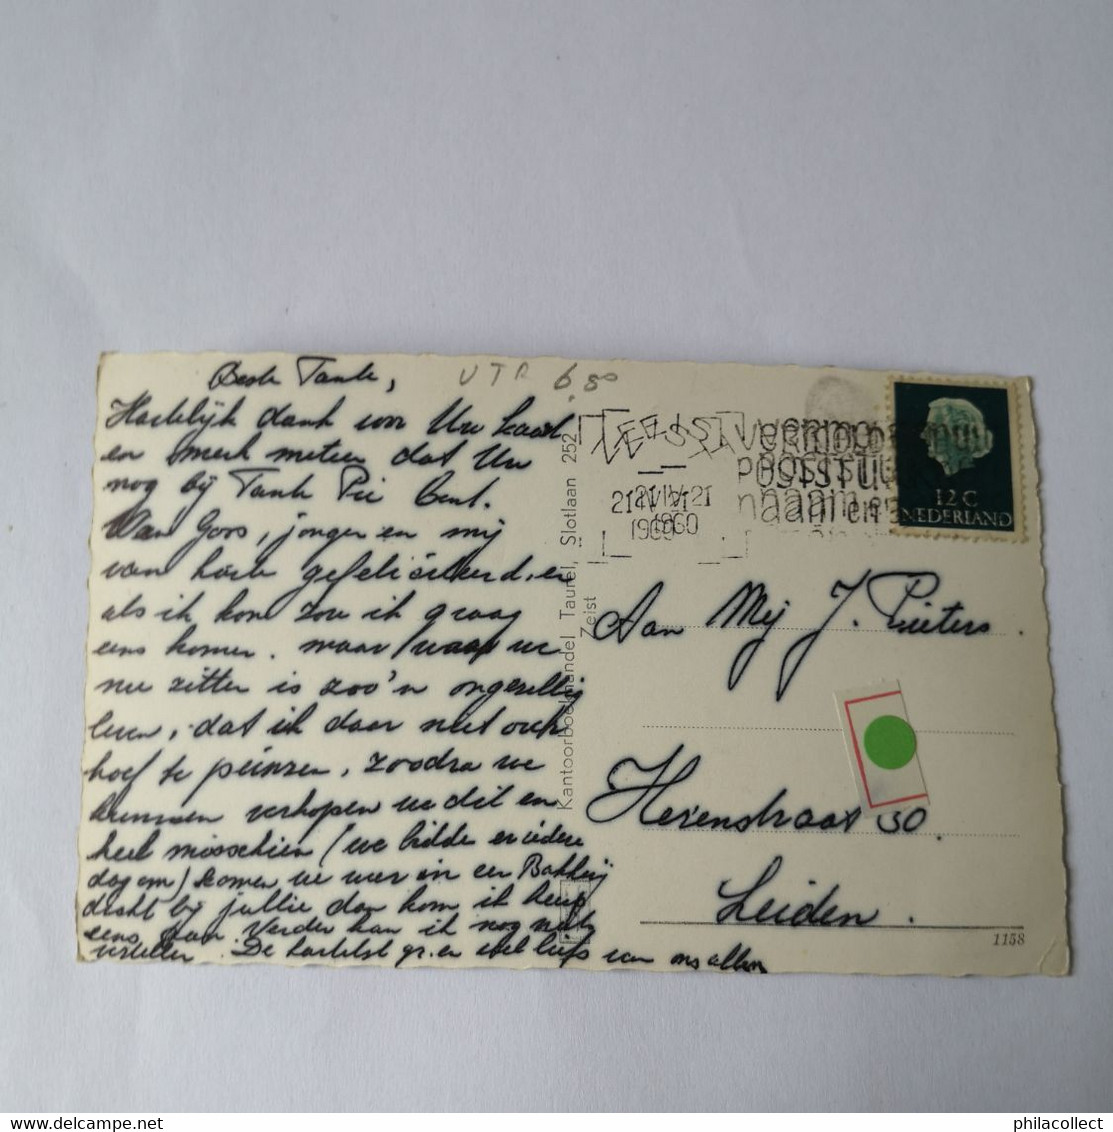 Beste Tante,
Hartelijk dank voor Uw kaart
en merk meteen dat Uw
nog bij Tante Pie bent.
Van Goos, jongen en mij
van harte gefeliciteerd, en
als ik kon zou ik graag
eens komen. maar waar we
nu zitten is zoo'n ongezellig
leven, dat ik daar niet over
hoef te peinzen, zoodra we
kunnen verkopen we dit en
heel misschien (we bidde er iedere
dag om) komen we weer in een Bakkerij
dicht bij jullie dan kom ik heus
eens gauw Verder kan ik nog niets
vertellen. De hartelst gr. en veel liefs van ons allen
UTR 6.80
ZEIST
21 IV 21
1960
12 C
NEDERLAND
Kantoorboekhandel Taurel, Slotlaan 252
Zeist
Aan Mej J. Pieters.
Herenstraat 50.
Leiden.
1158
philacollect